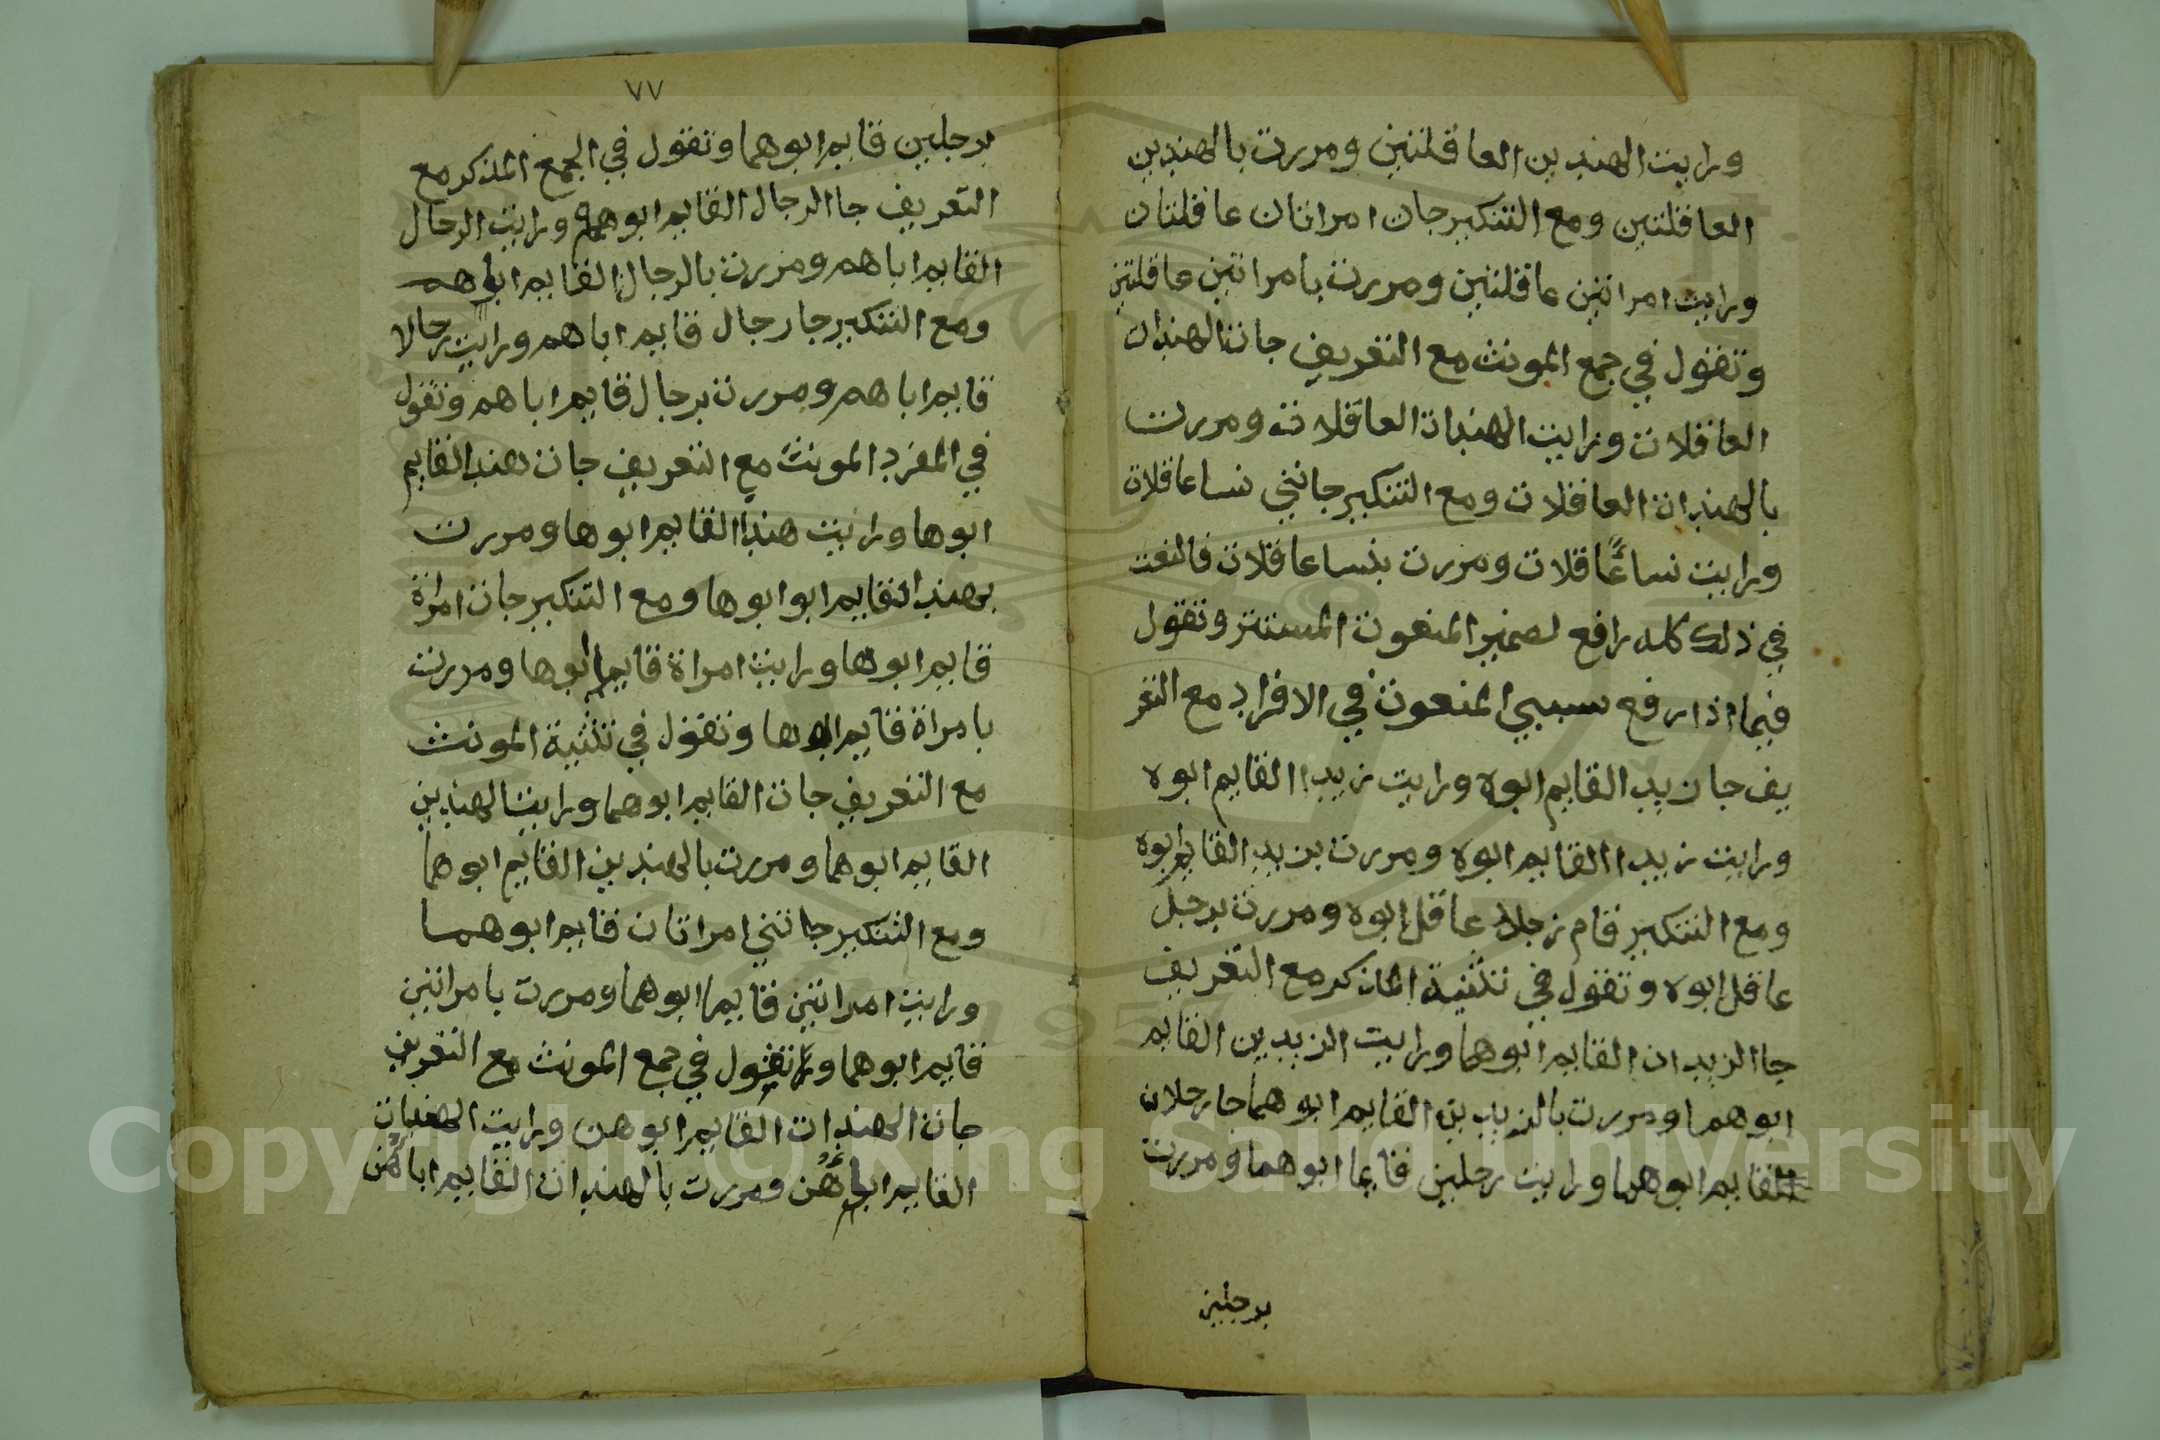 ورايت الهندين العاقلتين ومررت بالهندين
العاقلتين ومع التنكير جات امراتان عاقلتان
ورايت امراتين عاقلتين ومررت بامراتين عاقلتين
وتقول في جمع المونث مع التعريف جات الهندات
العاقلات ورايت الهندات العاقلات ومررت
بالهندات العاقلات ومع التنكير جاتني نسا عاقلات
ورايت نساءً عاقلات ومررت بنسا عاقلات فالنعت
في ذلك كله رافع لضمير المنعوت المستتر وتقول
فيما اذا رفع سببي المنعوت في الافراد مع التعر
يف جا زيد القايم ابوه ورايت زيدا القايم ابوه
ورايت زيدا القايم ابوه ومررت بزيد القايم ابوه
ومع التنكير قام رجلا عاقل ابوه ومررت برجل
عاقل ابوه وتقول في تثنية المذكر مع التعريف
جا الزيدان القايم ابوهما ورايت الزيدين القايم
ابوهما ومررت بالزيدين القايم ابوهما جا رجلان
القايم ابوهما ورايت رجلين قايما ابوهما ومررت
برجلين
٧٧
برجلين قايم ابوهما وتقول في الجمع المذكر مع
التعريف جا الرجال القايم ابوهم ورايت الرجال
القايم اباهم ومررت بالرجال القايم ابوهم
ومع التنكير جا رجال قايم اباهم ورايت رجالا
قايم اباهم ومررت برجال قايم اباهم وتقول
في المفرد المونث مع التعريف جات هند القايم
ابوها ورايت هندا القايم ابوها ومررت
بهند القايم ابوا بوها ومع التنكير جات امراة
قايم ابوها ورايت امراة قايما ابوها ومررت
بامراة قايم ابوها وتقول في تثنية المونث
مع التعريف جات القايم ابوهما ورايت الهندين
القايم ابوهما ومررت بالهندين القايم ابوهما
ومع التنكير جاتني امراتان قايم ابوهما
ورايت امراتين قايما ابوهما ومررت بامراتين
قايم ابوهما وتقول في جمع المونث مع التعريف
جات الهندات القايم ابوهن ورايت الهندات
القايم ابوهُن ومررت بالهندات القايم اباهُن
Copyright © King Saud University
1957